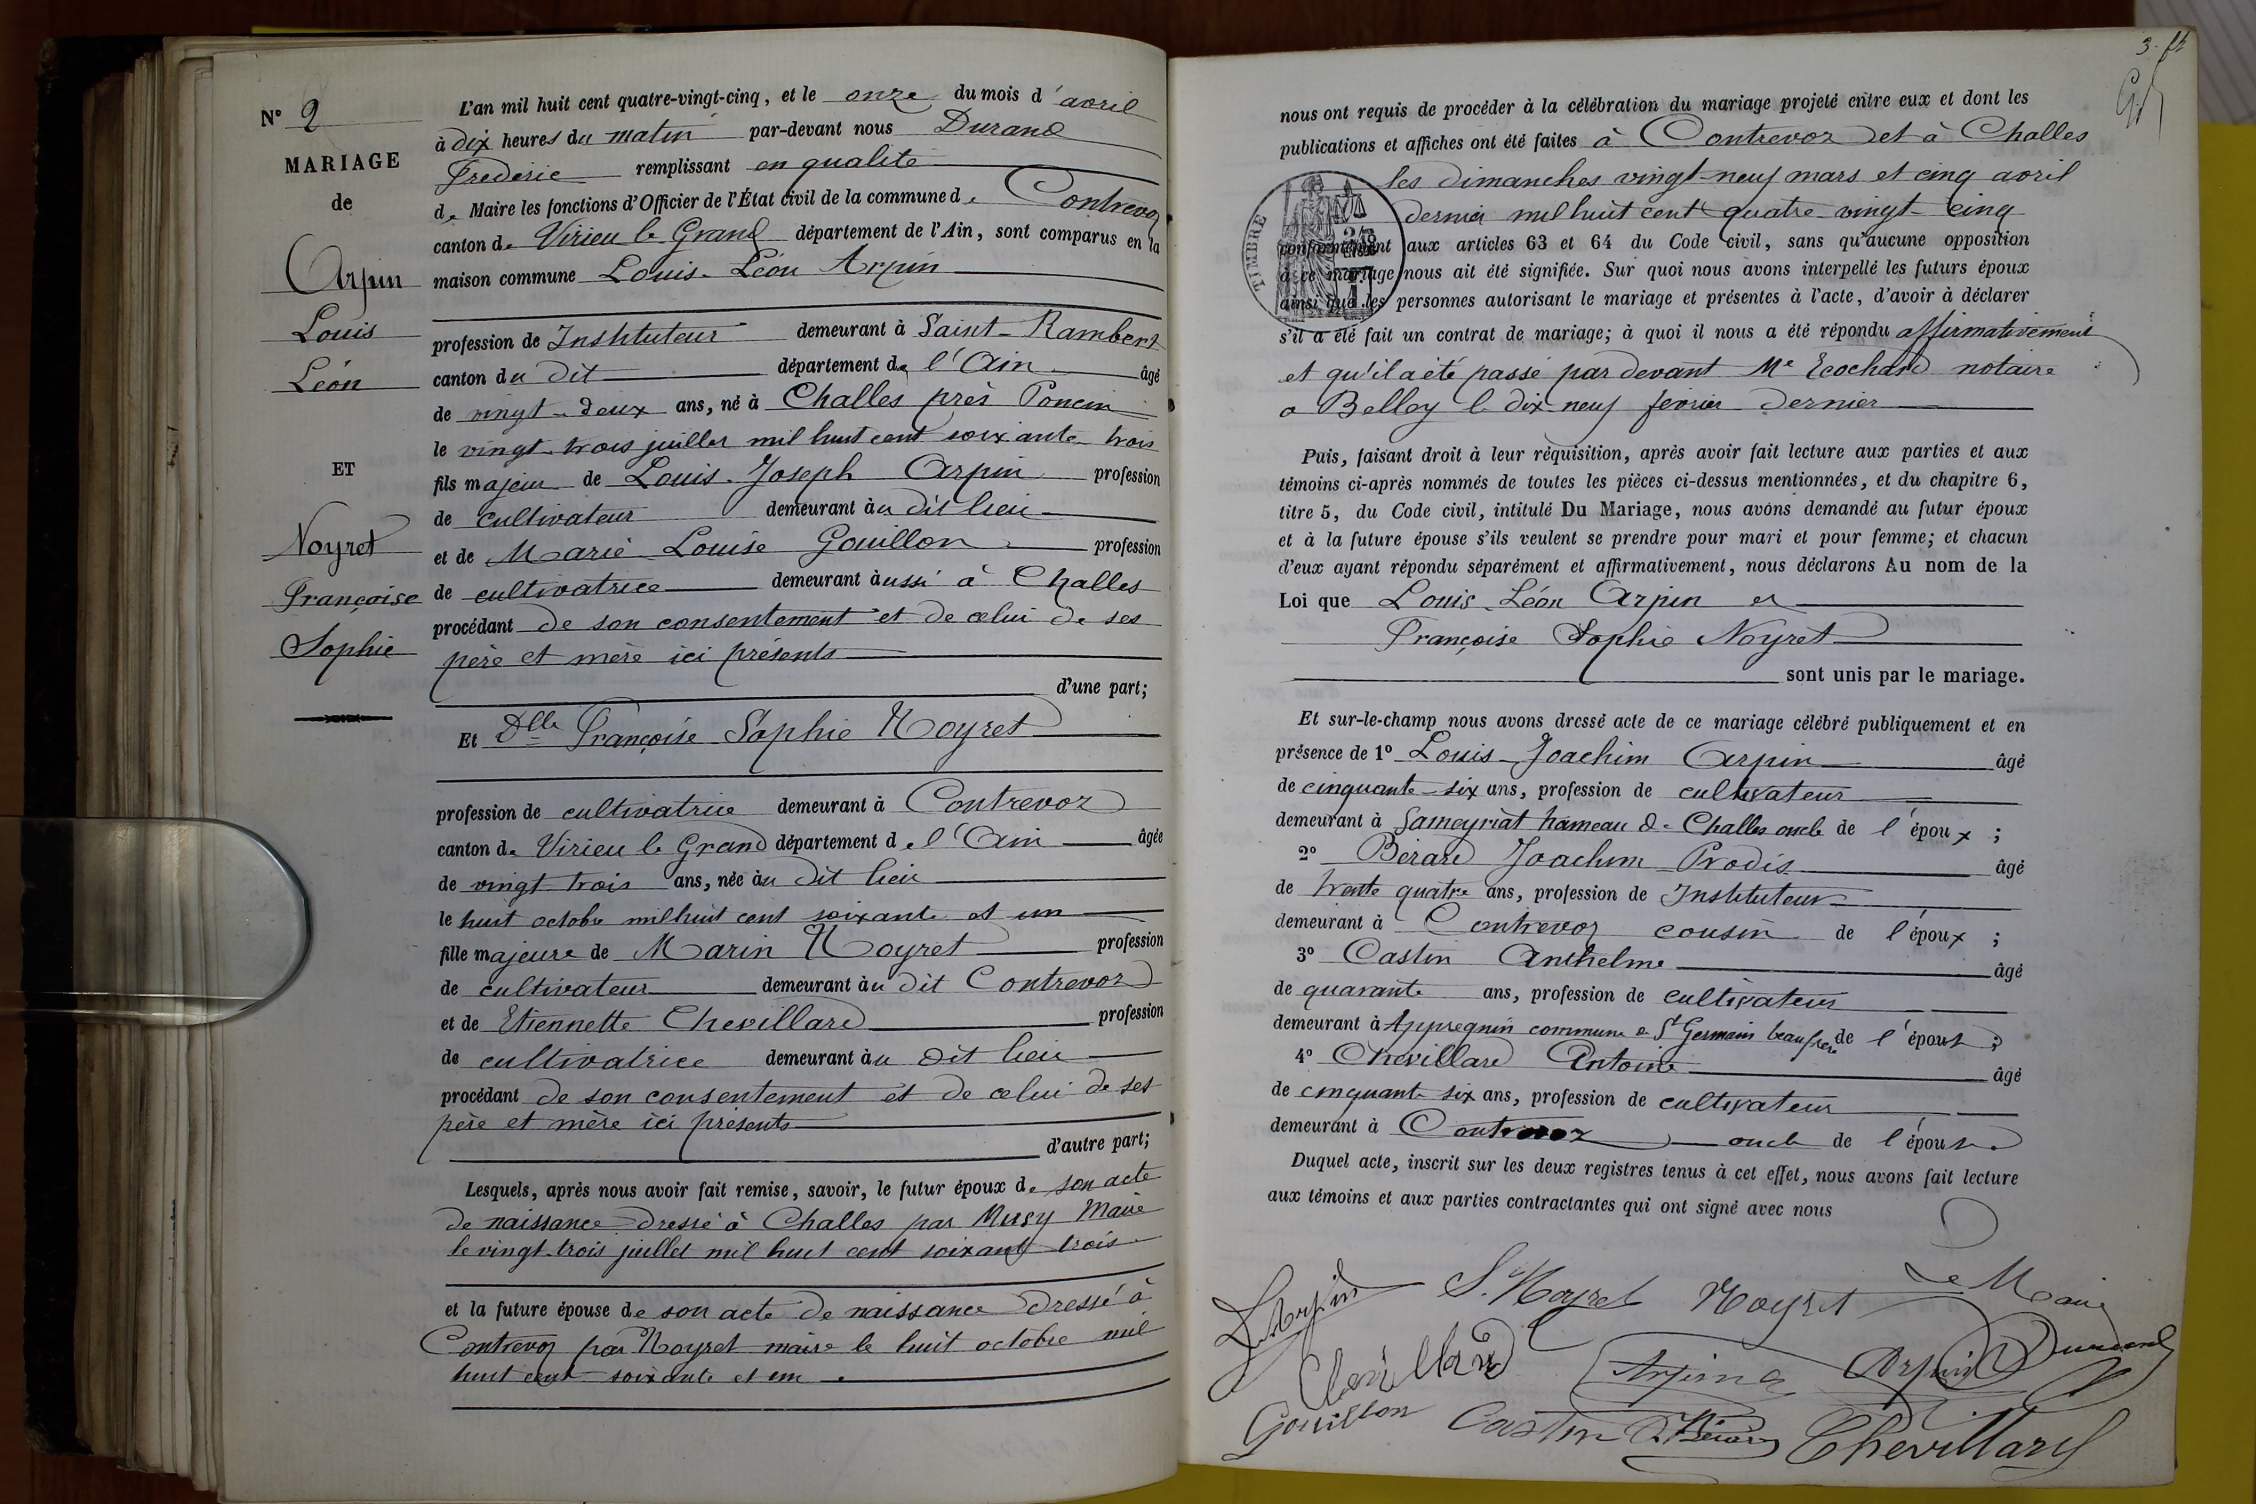 N° 2
MARIAGE
de
Arpin
Louis
Léon
ET
Noyret
Françoise
Sophie
L'an mil huit cent quatre-vingt-cinq, et le onze du mois d'avril
à dix heures du matin par-devant nous Durand
Frederic remplissant en qualité
de Maire les fonctions d'Officier de l'État civil de la commune de Contrevoz
canton de Virieu le Grand département de l'Ain, sont comparus en la
maison commune Louis-Léon Arpin
profession de Instituteur demeurant à Saint-Rambert
canton du dit département de l'Ain âgé
de vingt-deux ans, né à Challes près Poncin
le vingt-trois juillet mil huit cent soixante-trois
fils majeur de Louis-Joseph Arpin profession
de cultivateur demeurant au dit lieu
et de Marie Louise Gouillon profession
de cultivatrice demeurant aussi à Challes
procédant de son consentement et de celui de ses
père et mère ici présents
d'une part;
Et Dlle Françoise Sophie Noyret
profession de cultivatrice demeurant à Contrevoz
canton de Virieu le Grand département de l'Ain âgée
de vingt trois ans, née au dit lieu
le huit octobre mil huit cent soixante et un
fille majeure de Marin Noyret profession
de cultivateur demeurant au dit Contrevoz
et de Etiennette Chevillard profession
de cultivatrice demeurant au dit lieu
procédant de son consentement et de celui de ses
père et mère ici présents
d'autre part;
Lesquels, après nous avoir fait remise, savoir, le futur époux de son acte
de naissance dressé à Challes par Musy Maire
le vingt-trois juillet mil huit cent soixante trois
et la future épouse de son acte de naissance dressé à
Contrevoz par Noyret maire le huit octobre mil
huit cent soixante et un
3.
nous ont requis de procéder à la célébration du mariage projeté entre eux et dont les
publications et affiches ont été faites à Contrevoz et à Challes
les dimanches vingt-neuf mars et cinq avril
dernier mil huit cent quatre-vingt-cinq
TIMBRE
conformément aux articles 63 et 64 du Code civil, sans qu'aucune opposition
à ce mariage nous ait été signifiée. Sur quoi nous avons interpellé les futurs époux
ainsi que les personnes autorisant le mariage et présentes à l'acte, d'avoir à déclarer
s'il a été fait un contrat de mariage; à quoi il nous a été répondu affirmativement
et qu'il a été passé par devant Me Ecochard notaire
a Belley le dix-neuf fevrier dernier
Puis, faisant droit à leur réquisition, après avoir fait lecture aux parties et aux
témoins ci-après nommés de toutes les pièces ci-dessus mentionnées, et du chapitre 6,
titre 5, du Code civil, intitulé Du Mariage, nous avons demandé au futur époux
et à la future épouse s'ils veulent se prendre pour mari et pour femme; et chacun
d'eux ayant répondu séparément et affirmativement, nous déclarons Au nom de la
Loi que Louis-Léon Arpin et
Françoise Sophie Noyret
sont unis par le mariage.
Et sur-le-champ nous avons dressé acte de ce mariage célébré publiquement et en
présence de 1° Louis-Joachim Arpin âgé
de cinquante-six ans, profession de cultivateur
demeurant à Sameyriat hameau de Challes oncle de l'époux ;
2° Bérard Joachim Prodis âgé
de trente quatre ans, profession de Instituteur
demeurant à Contrevoz cousin de l'époux ;
3° Castin Anthelme âgé
de quarante ans, profession de cultivateur
demeurant à Appregnin commune de St Germain beaufrère de l'épouse ;
4° Chevillard Antoine âgé
de cinquante-six ans, profession de cultivateur
demeurant à Contrevoz oncle de l'épouse
Duquel acte, inscrit sur les deux registres tenus à cet effet, nous avons fait lecture
aux témoins et aux parties contractantes qui ont signé avec nous
L. Arpin S. Noyret Noyret Le Maire
Chevillard Arpin Arpin Durand
Gouillon Castin Bérard Chevillard